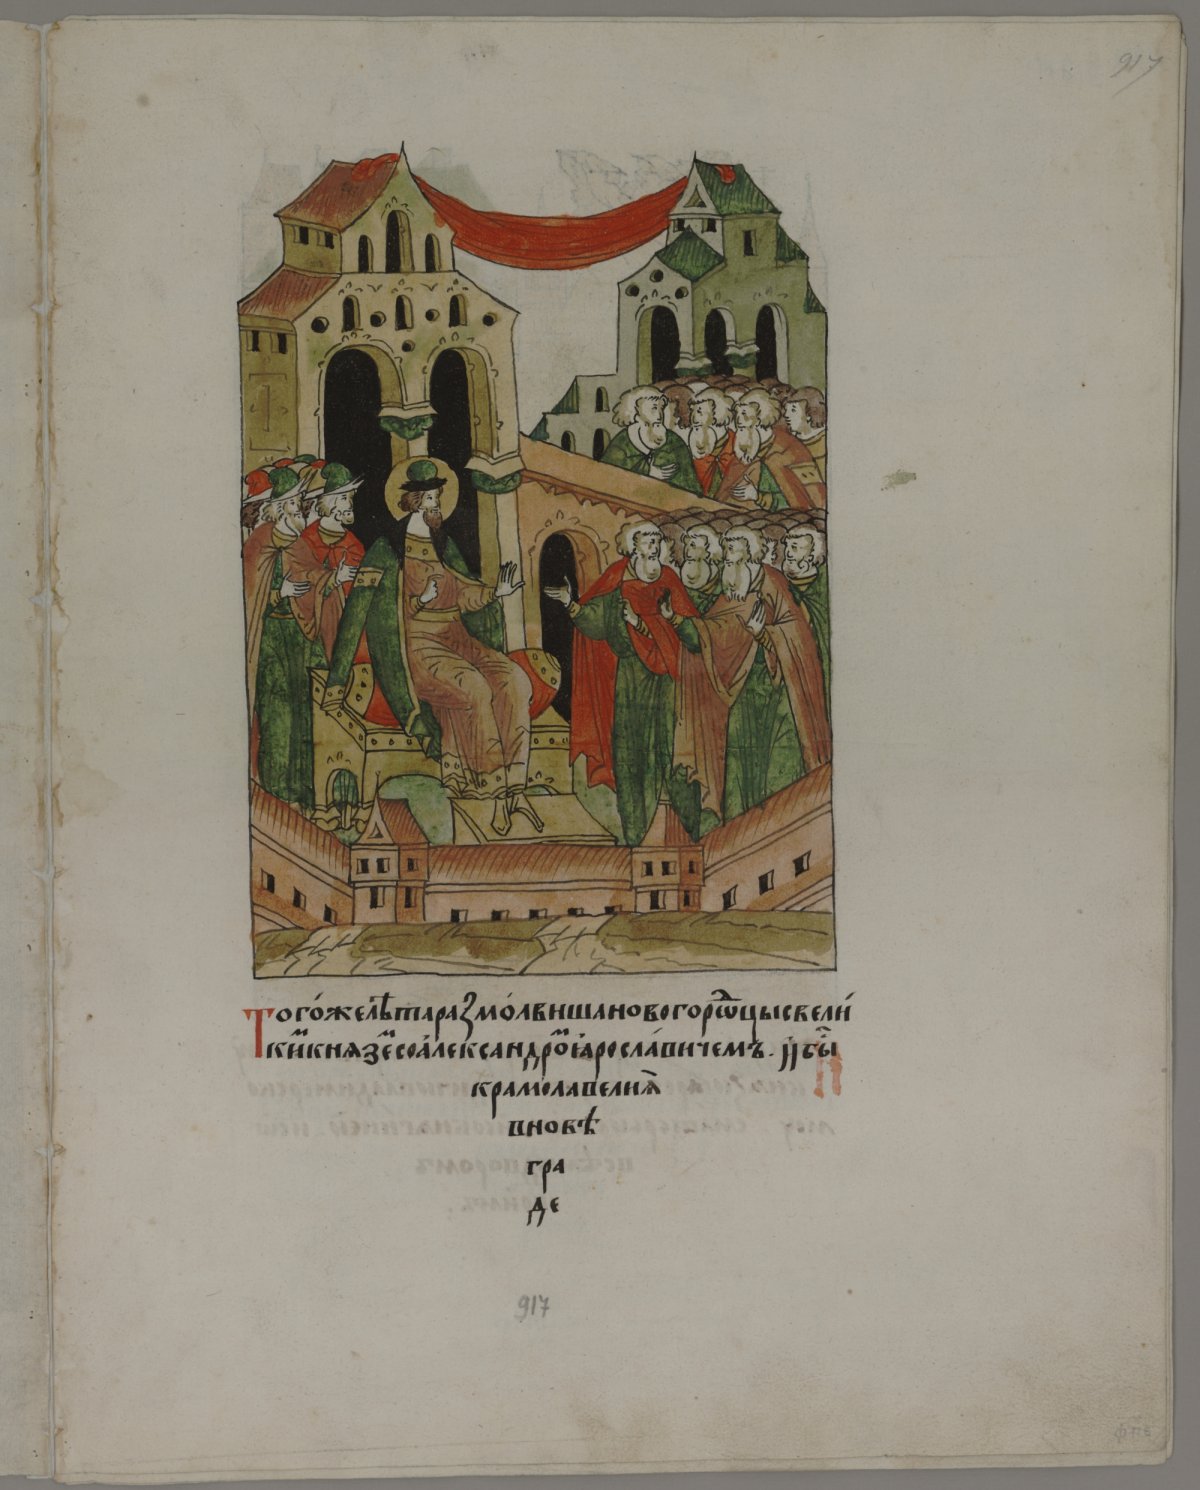 917
Того́желѣтаразмо́лвишанов̾огорѡ҃цысвели́
ки́мкнязе́мсоа҆леѯандро́мꙗ҆росла́вичемъ. и҆бы́
крамолавелиꙗ
вновѣ
гра
де
917
фпе